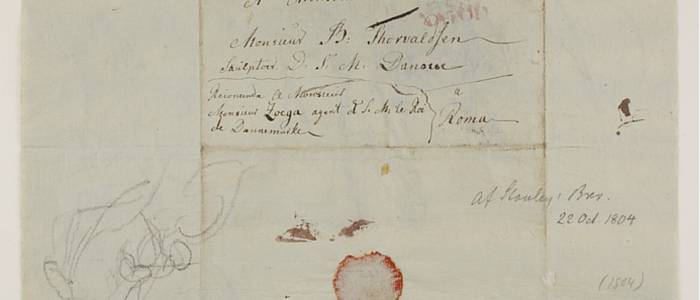 Monsieur B: Thorvaldsen
Sculptoir D. S. M. Danoise
Recomendé A Monsieur
Monsieur Zoega agent d S. M. le Roi
de Dannemarke
a
Roma
af Stanley's Brev.
22 Oct 1804
(1804)